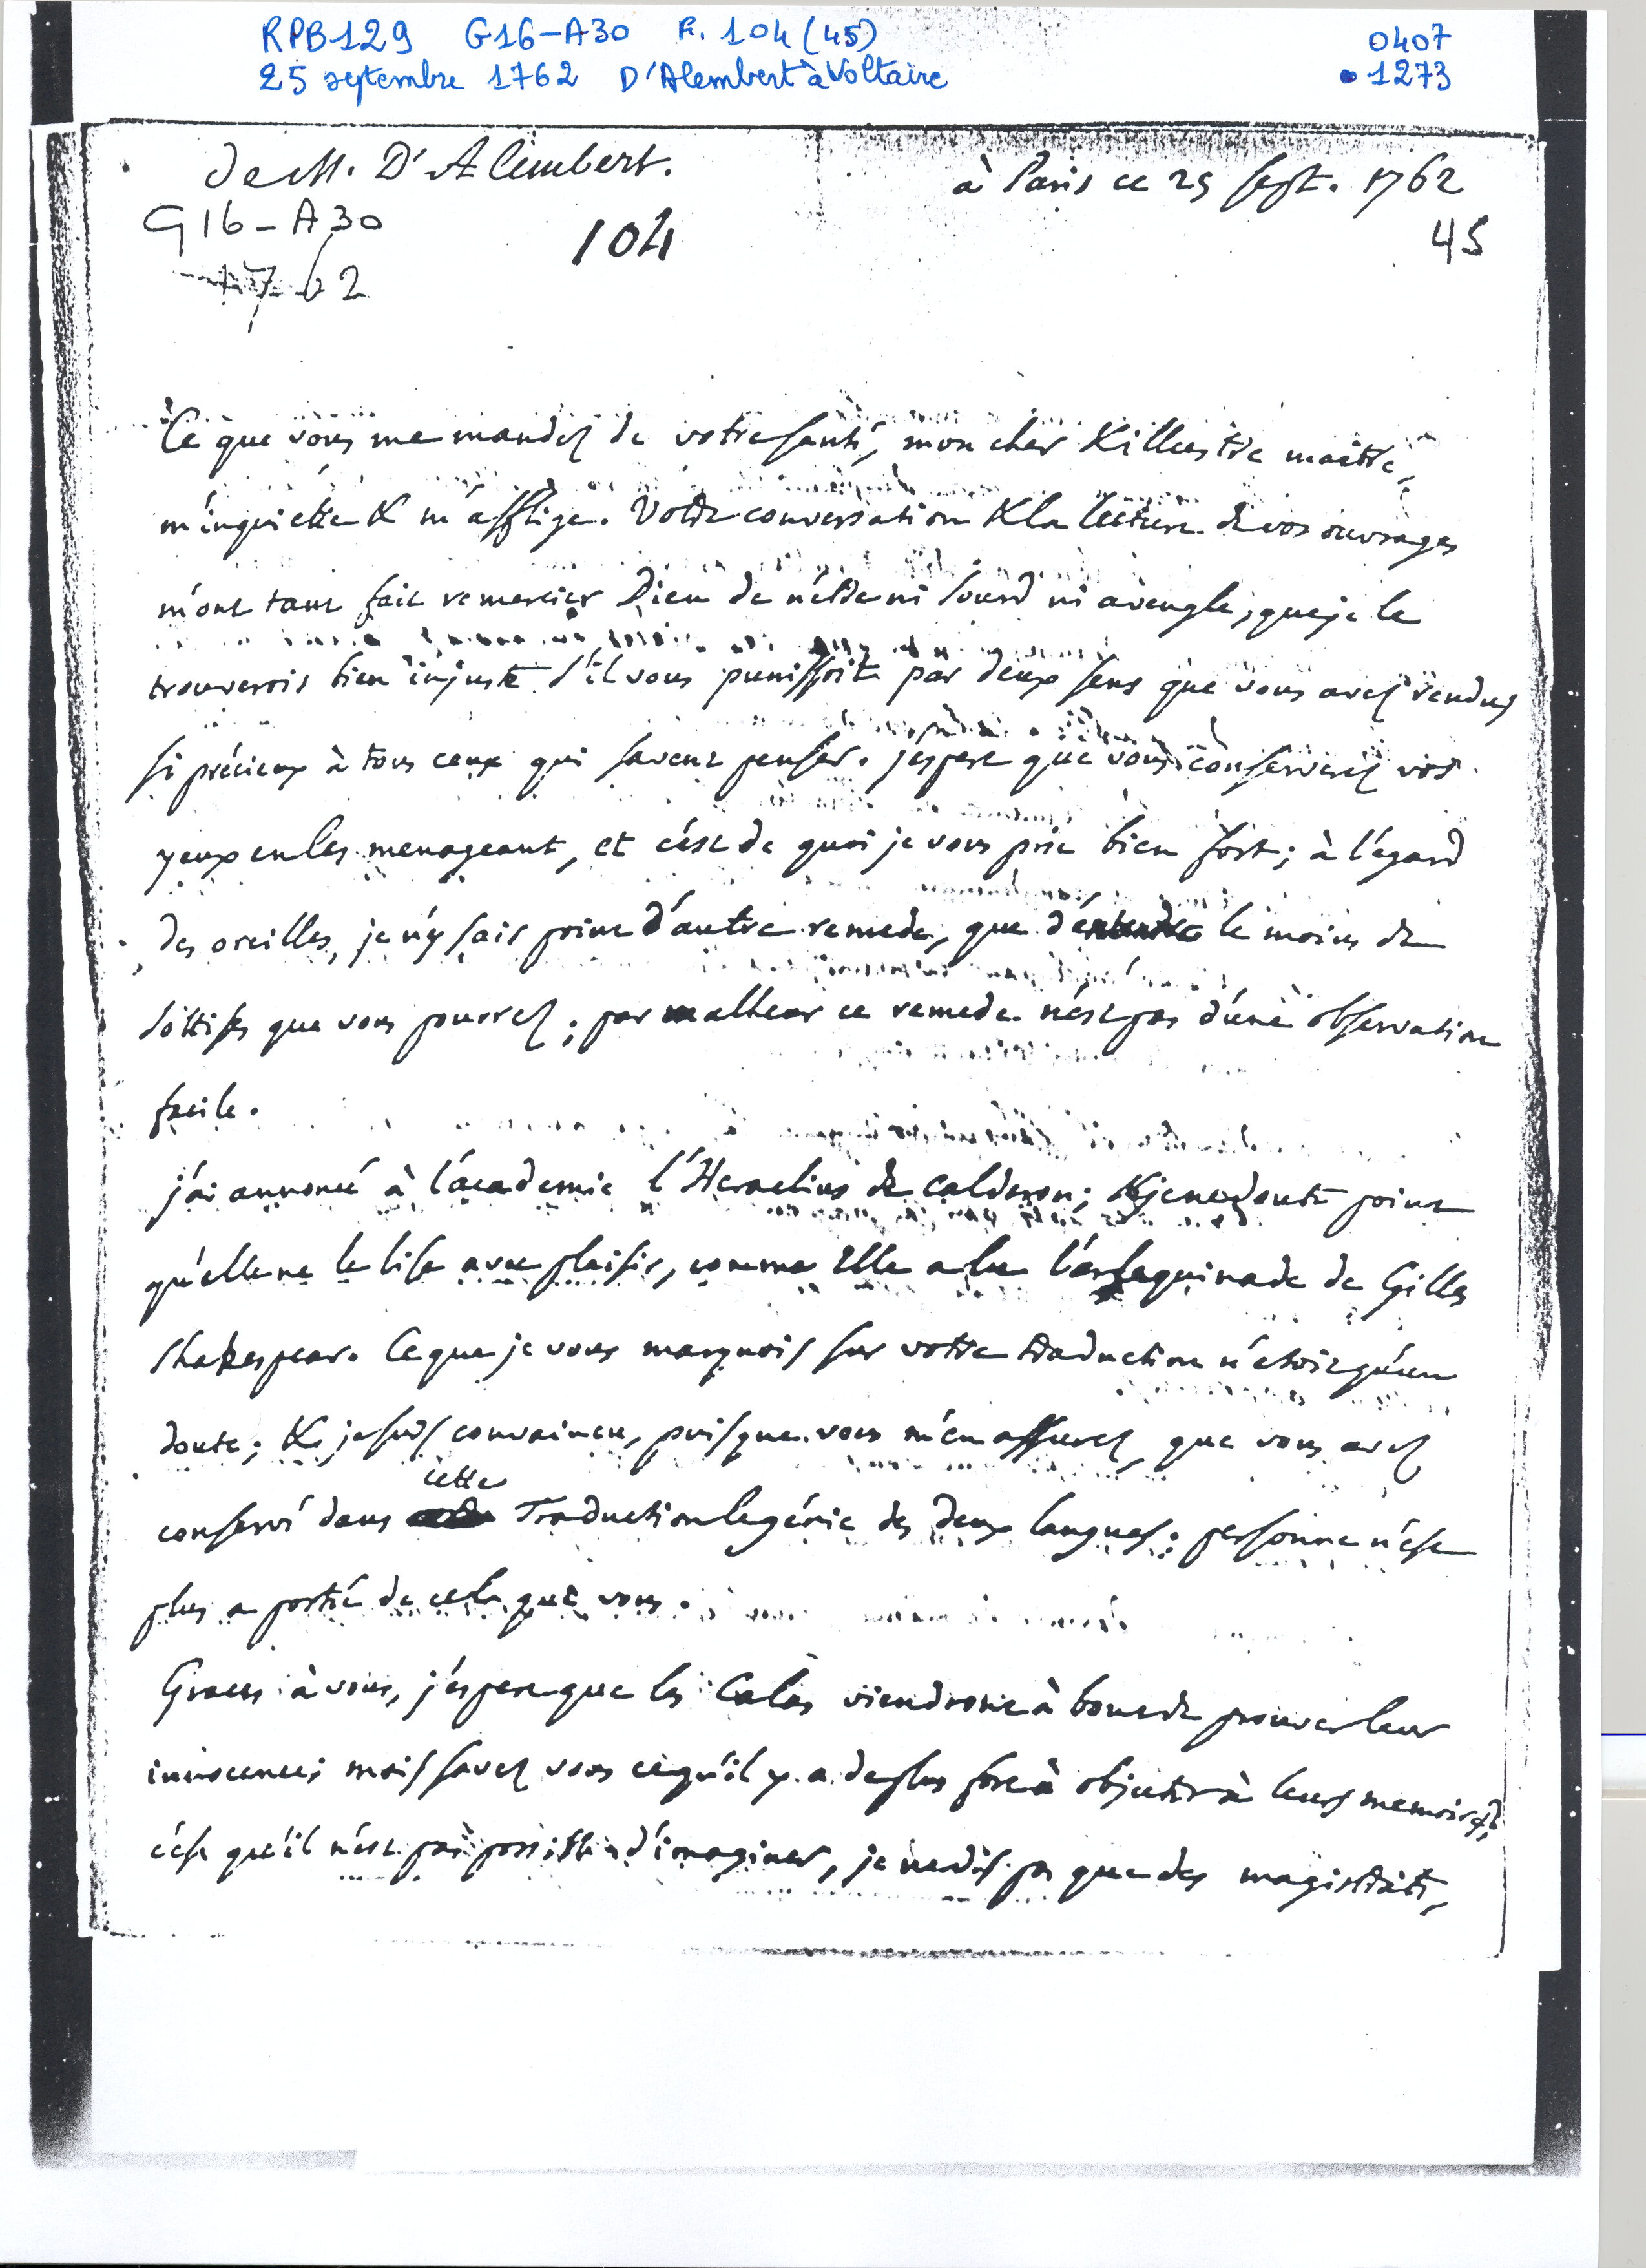 RPB129 G16-A30 F. 104 (45)
0407
25 septembre 1762 D'Alembert à Voltaire
1273
De M. D'Alembert.
à Paris ce 25 sept. 1762
G16-A30
104
45
1762
Ce que vous me mandez de votre santé, mon cher & illustre maitre,
m'inquiette & m'afflige. Votre conversation & la lecture de vos ouvrages
m'ont tant fait remercier Dieu de n'être ni sourd ni aveugle, que je le
trouverois bien injuste s'il vous punissoit par deux sens que vous avez rendus
si précieux à tous ceux qui savent penser. j'espere que vous conserverez vos
yeux en les menageant, et c'est de quoi je vous prie bien fort; à l'égard
des oreilles, je n'y sais point d'autre remede, que d'entendre le moins de
sottises que vous pourrez; par malheur ce remede n'est pas d'une observation
facile.
j'ai annoncé à l'academie l'Heraclius de Calderon; & je ne doute point
qu'elle ne le lise avec plaisir, comme elle a lu l'arlequinade de Gilles
Shakespear. Ce que je vous marquois sur votre traduction n'étoit qu'un
doute; & je suis convaincu, puisque vous m'en assurez, que vous avez
cette
conservé dans Traduction le génie des deux langues: personne n'est
plus a portée de cela que vous.
Graces à vous, j'espere que les Calas viendront à bout de prouver leur
innocence; mais savez vous ce qu'il y a de plus fort à objecter à leurs memoires?
c'est qu'il n'est pas possible d'imaginer, je ne dis pas que des magistrats,